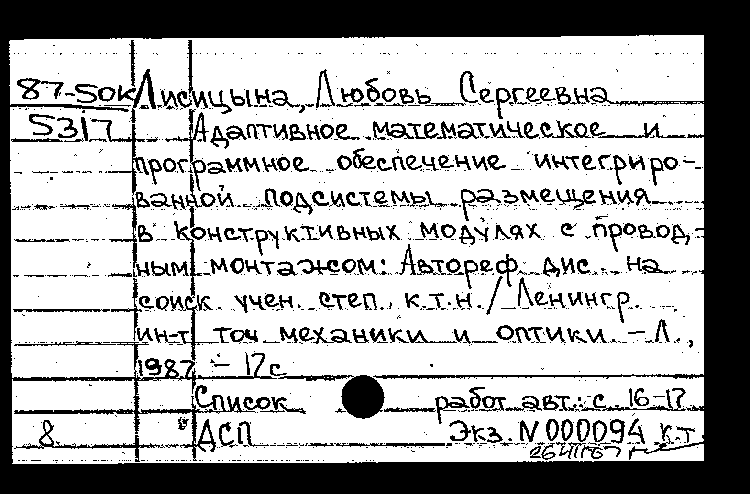 87-50к Лисицына, Любовь Сергеевна
5317 Адаптивное математическое и
программное обеспечение интегриро-
ванной подсистемы размещения
в конструктивных модулях с провод-
ным монтажом: Автореф. дис. на
соиск. учен. степ. к.т.н. / Ленингр.
ин-т точ. механики и оптики. – Л.,
1987. – 17 с
Список работ авт.: с. 16-17
8 ДСП Экз. N 000094 к.т.